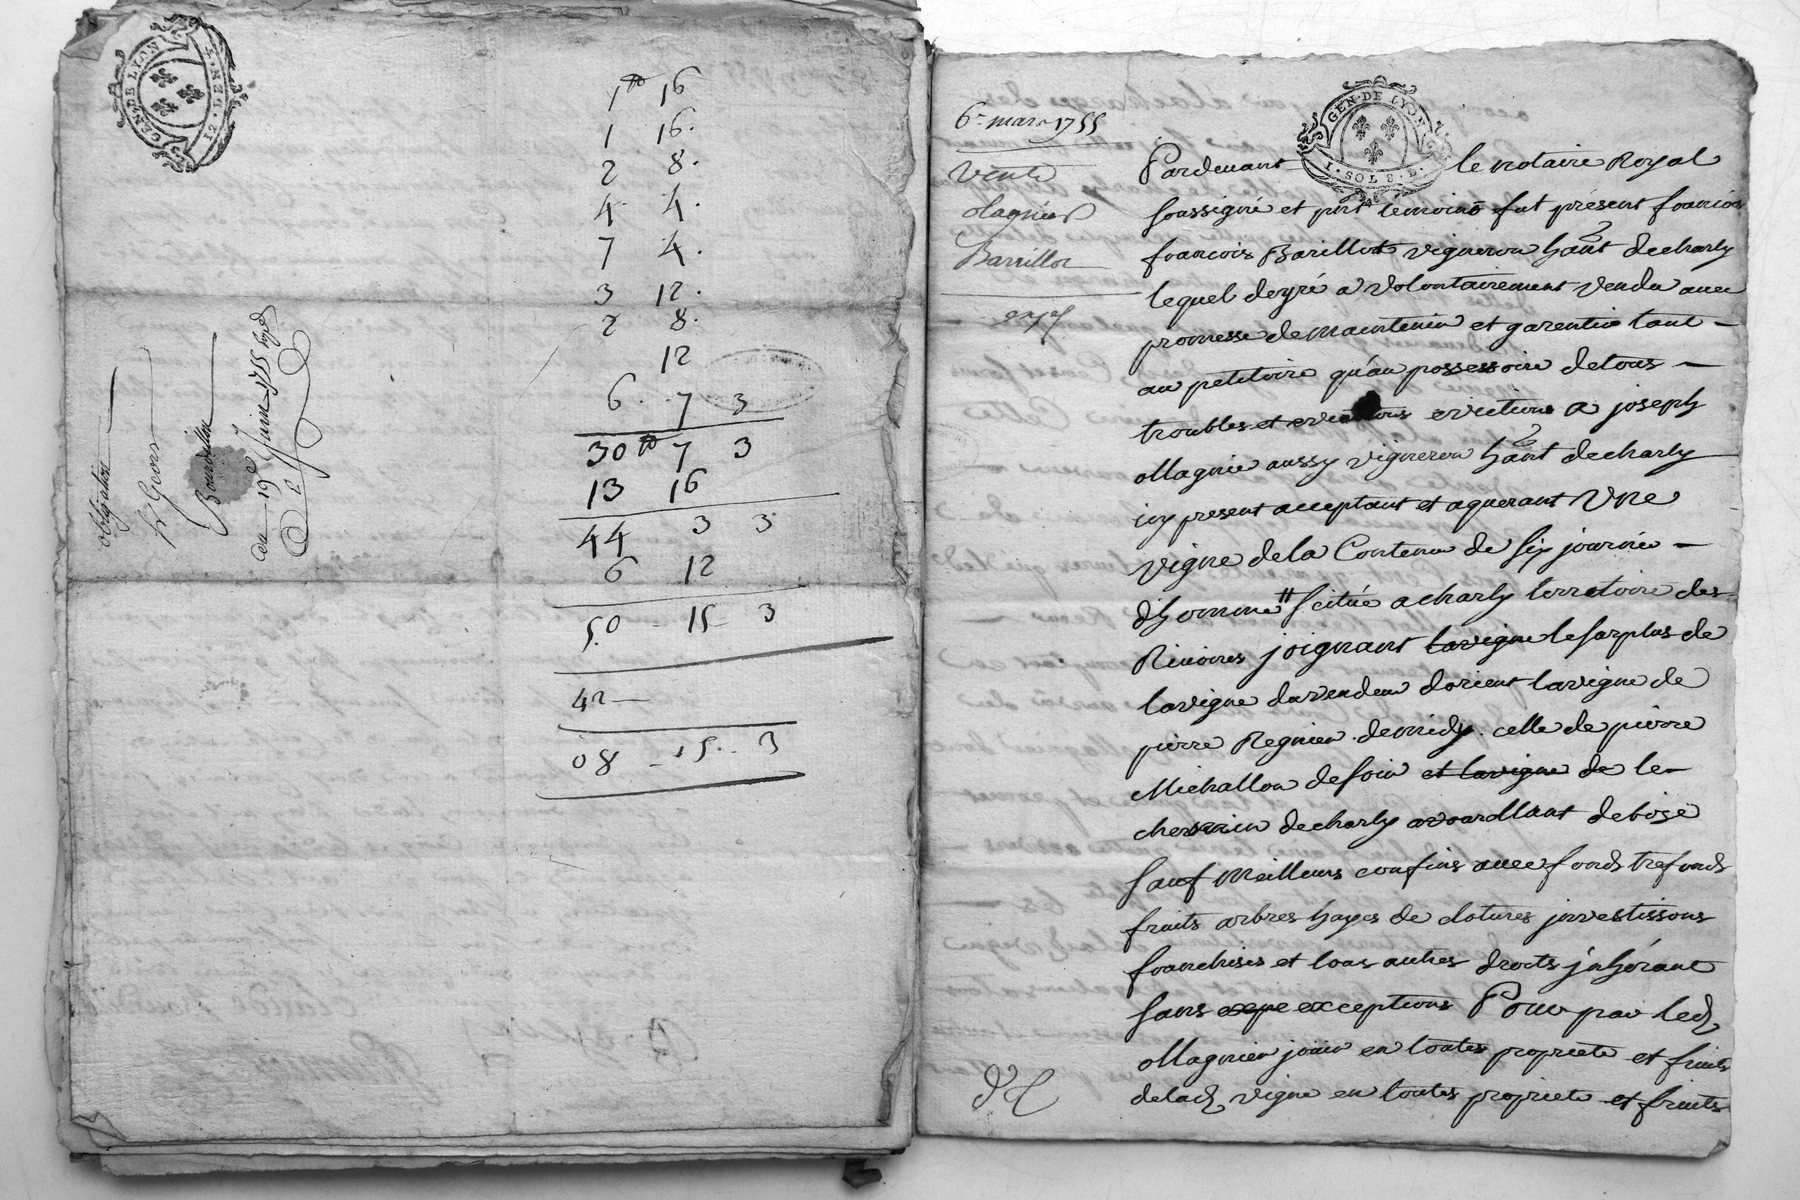 GEN. DE LION
12. DEN. 4.
1 ₶ 16
1 16.
2 8.
4 4.
7 4.
3 12.
2 8.
12
6. 7 3
30 ₶ 7 3
13 16
44 3 3
6 12
50 - 15 3
42 -
08 - 15. 3
obligation
Sr Geors
Bourdillin
du 19e Juin 1755
GEN. DE LYON
1. SOL 8. D.
6e mars 1755
Vente
olagnier
Barillot
Pardevant le notaire Royal
soussigné et pnt témoins fut présent francois
francois Barillot vigneron hant decharly
lequel degré a volontairement vendu avec
promesse de maintenir et garentie tant
au petitoire qu'au possessoire detous
troubles et evictions evictions a joseph
ollagnie aussy vigneron hant decharly
icy present acceptant et aquerant Une
vigne dela Contenu de six journée
d'homme scituée a charly terretoire des
Rivoires joignant lavigne le surplus de
lavigne duvendeur dorient lavigne de
pierre Regnier demidy celle de pierre
Michallon desoir et lavigne de le
chermin decharly a vourllant debize
sauf meilleurs confins avec fonds trefonds
fruits arbres hayes de clotures jnvestissons
franchises et tous autres droits jnhérant
sans exepe exceptions Pour par led
ollagnier jouir en toutes propriete et fruits
delad vigne en toutes propriete et fruits